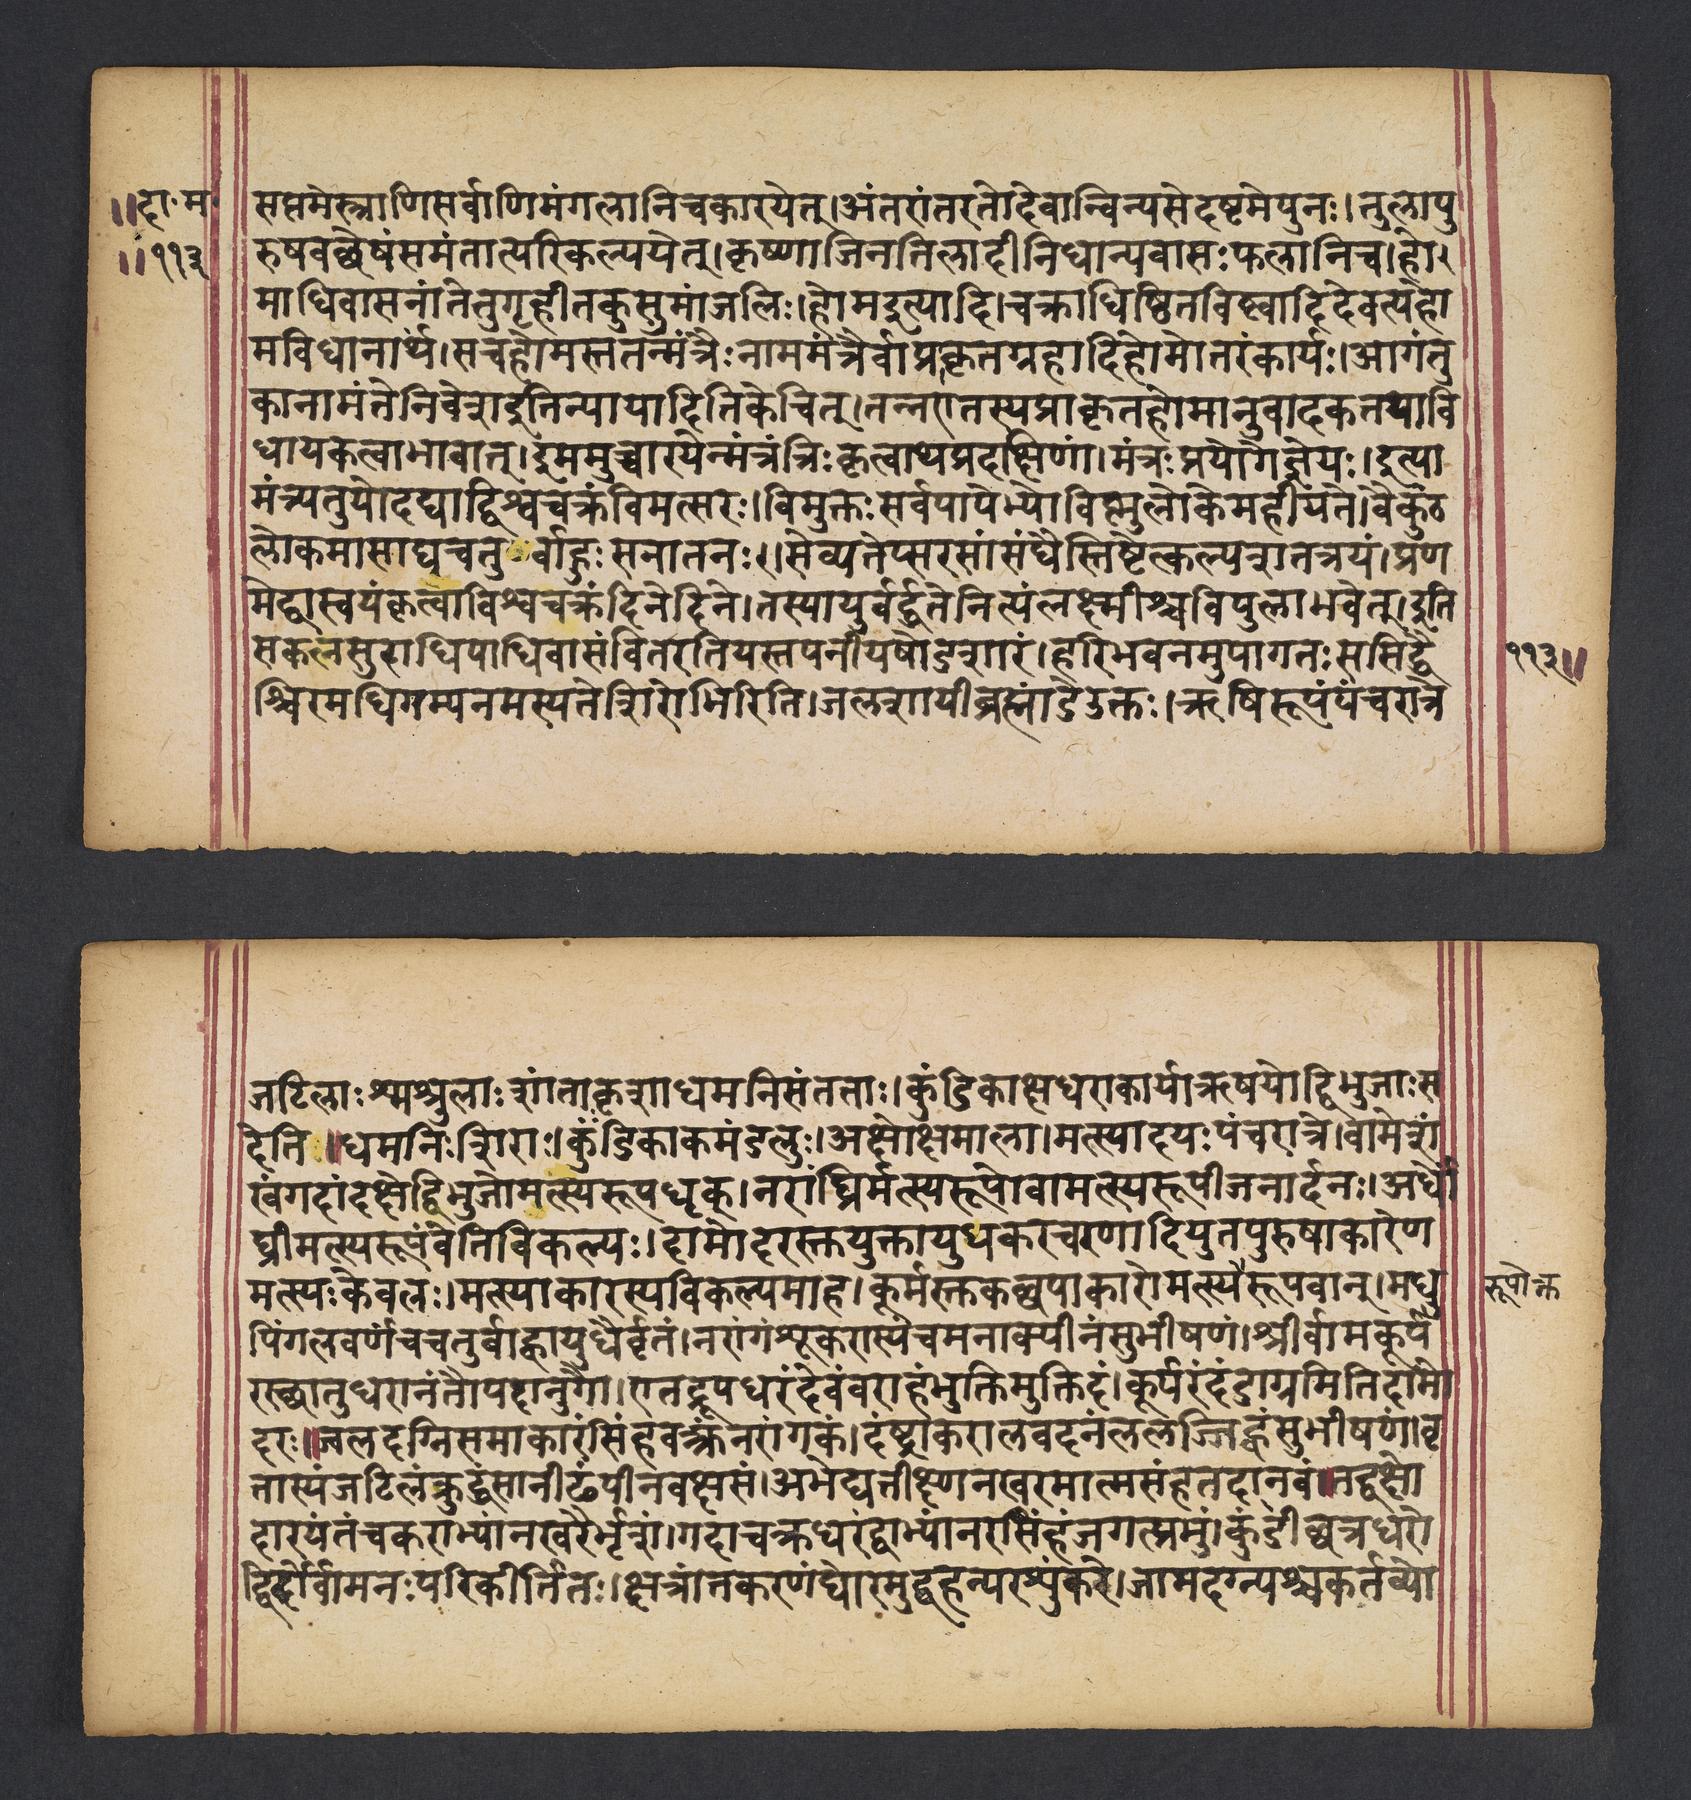 ॥दा॰म॰
॥११३
सप्तमेस्त्राणिसर्वाणिमंगलानिचकारयेत्।अंतरांतरतोदेवान्विन्यसेदष्टमेपुनः।तुलापु
रुषवच्छेषंसमंतात्परिकल्पयेत्।कृष्णाजिनतिलादीनिधान्यवासःफलानिच।हो२
माधिवासनांतेतुगृहीतकुसुमांजलिः।होमइत्यादि।चक्राधिष्ठितविष्ण्वादिदेवत्यहो
मविधानार्थं।सचहोमस्ततन्मंत्रैःनाममंत्रैर्वाप्रकृतग्रहादिहोमोतरंकार्यः।आगंतु
कानामंतेनिवेशइतिन्यायादितिकेचित्।तन्नरातस्यप्राकृतहोमानुवादकतयावि
धायकत्वाभावात्।इममुच्चारयेन्मंत्रंत्रिःकृत्वाथप्रदक्षिणां।मंत्रःप्रयोगेज्ञेयः।इत्या
मंत्र्यतुयोदद्याद्विश्वचक्रंविमत्सरः।विमुक्तःसर्वपापेभ्योविष्णुलोकेमहीयते।वैकुंठ
लोकमासाद्यचतुर्बाहुःसनातनः।।सेव्यतेप्सरसांसंघैस्तिष्टेत्कल्पशतत्रयं।प्रण
मेद्वास्वयंकृत्वाविश्वचक्रंदिनेदिने।तस्यायुर्वर्द्धतेनित्यंलक्ष्मीश्चविपुलाभवेत्।इति
सकलसुराधिपाधिवासंवितरतियस्तपनीयषोडशारं।हरिभवनमुपागतःससिद्धै
श्चिरमधिगम्यनमस्यतेशिरोभिरिति।जलशायीब्रह्मांडेउक्तः।ऋषिरूपंपंचरात्रे
११३॥
जटिलाःश्मश्रुलाःशांताकृशाधमनिसंतताः।कुंडिकाक्षधराकार्याऋषयोद्विभुजाःस
देति॥धमनिःशिराः।कुंडिकाकमंडलुः।अक्षोक्षमाला।मत्स्यादयःपंचरात्रे।वामेशं
खंगदांदक्षेद्विभुजोमत्स्यरूपधृक्।नरांघ्रिर्मत्स्यरूपोवामत्स्यरूपीजनार्दनः।अर्धो
घ्रीमत्स्यरूपंवेतिविकल्पः।दामोदरस्क्तयुक्तायुधकरचरणादियुतपुरुषाकारेण
मत्स्यःकेवलः।मत्स्याकारस्यविकल्पमाह।कूर्मस्क्तकच्छपाकारोमत्स्यरूपवान्।मधु
रूपोक्त
पिंगलवर्णंचचतुर्बाह्वायुधैर्वृतं।नरांगंशूकरास्यंचमनाक्पीनंसुभीषणं।श्रीर्वामकूर्प
रस्थातुधरानंतौपदानुगौ।एतद्रूपधरंदेवंवराहंभुक्तिमुक्तिदं।कूर्परंदंष्ट्राग्रमितिदामो
दरः॥ज्वलदग्निसमाकारंसिंहवक्त्रंनरांगकं।दंष्ट्राकरालवदनंललज्जिह्वंसुभीषणं।वृ
त्तास्यंजटिलंक्रुद्धंसालीढंपीनवक्षसं।अभेद्यतीक्ष्णनखरमात्मसंहतदानवं॥तद्वक्षो
दारयंतंचकराभ्यांनखरैर्भृशं।गदाचक्रधरंद्वाभ्यांनरसिंहंजगत्प्रभुं।कुंडीछत्रधरो
द्विर्दोर्वामनःपरिकीर्तितः।क्षत्रांतकरणंघोरमुद्वहन्परशुंकरे।जामदग्न्यश्चकर्तव्यो